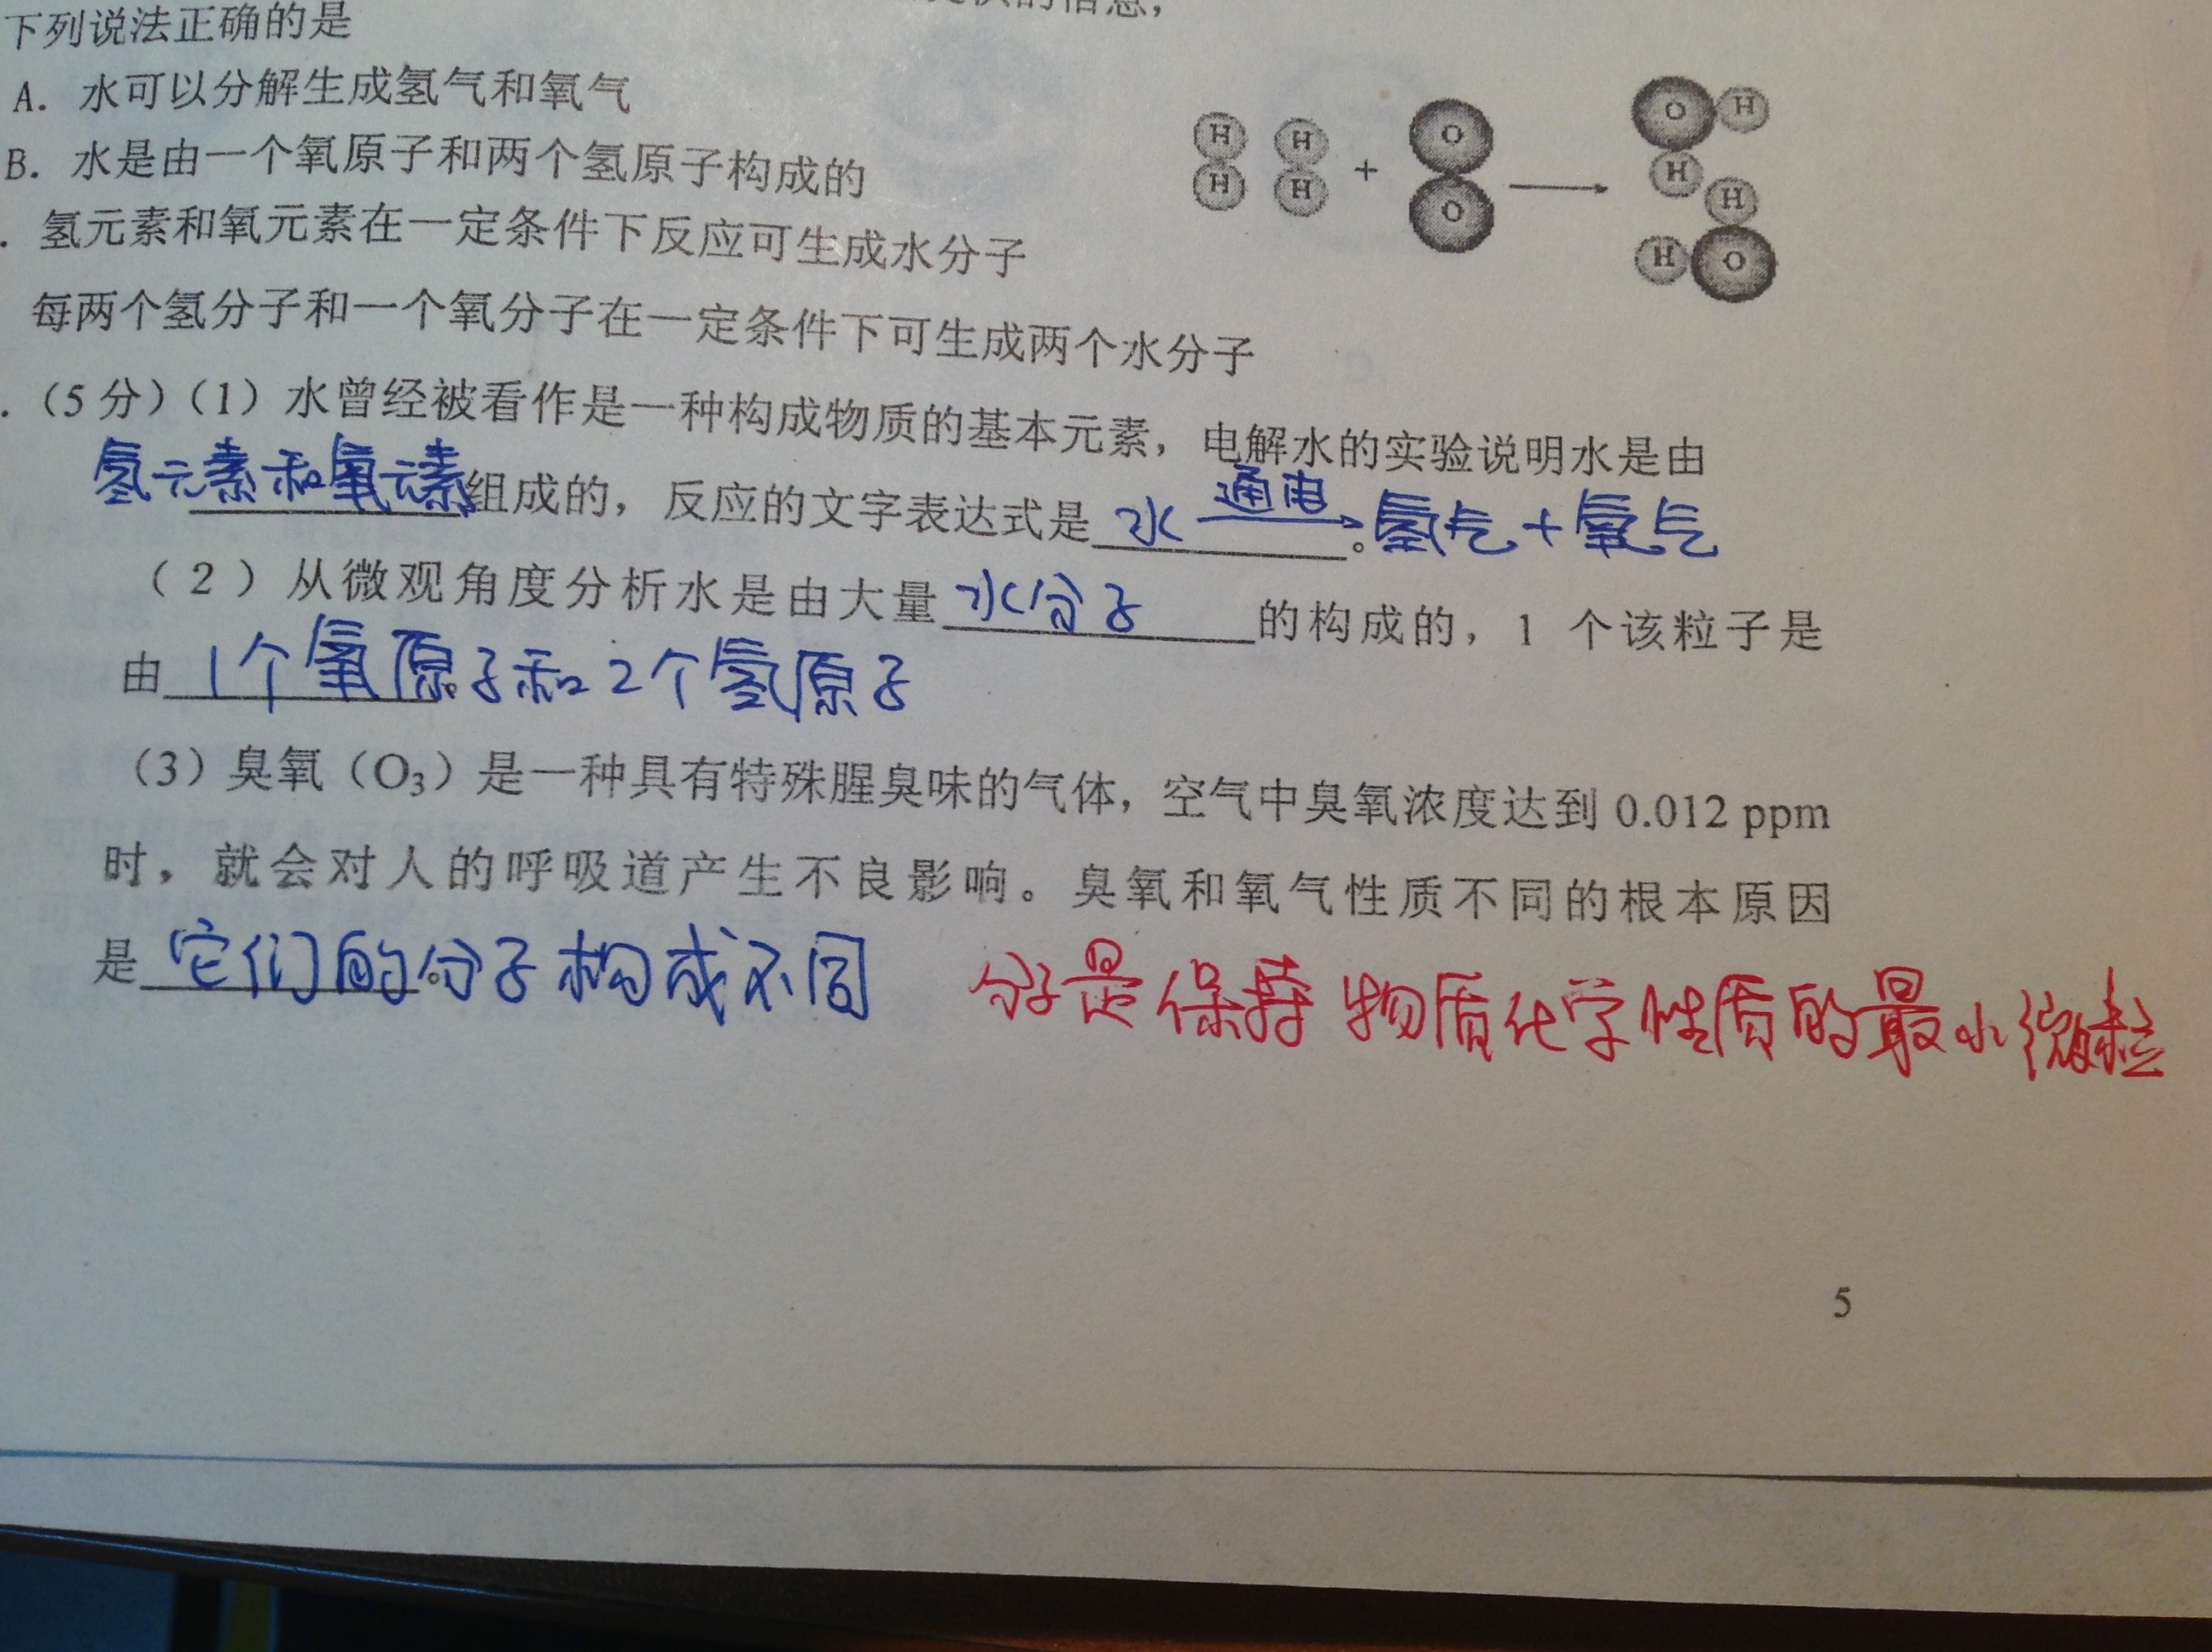 的信息，
下列说法正确的是
A. 水可以分解生成氢气和氧气
B. 水是由一个氧原子和两个氢原子构成的
. 氢元素和氧元素在一定条件下反应可生成水分子
每两个氢分子和一个氧分子在一定条件下可生成两个水分子
H H O O H
H H + O → H H
H O
.（5分）（1）水曾经被看作是一种构成物质的基本元素，电解水的实验说明水是由
氢元素和氧元素组成的，反应的文字表达式是 水 通电→ 。氢气+氧气
（2）从微观角度分析水是由大量 水分子 的构成的，1 个该粒子是
由 1个氧原子和2个氢原子
（3）臭氧（O₃）是一种具有特殊腥臭味的气体，空气中臭氧浓度达到 0.012 ppm
时，就会对人的呼吸道产生不良影响。臭氧和氧气性质不同的根本原因
是 它们的分子构成不同 分子是保持物质化学性质的最小微粒
5